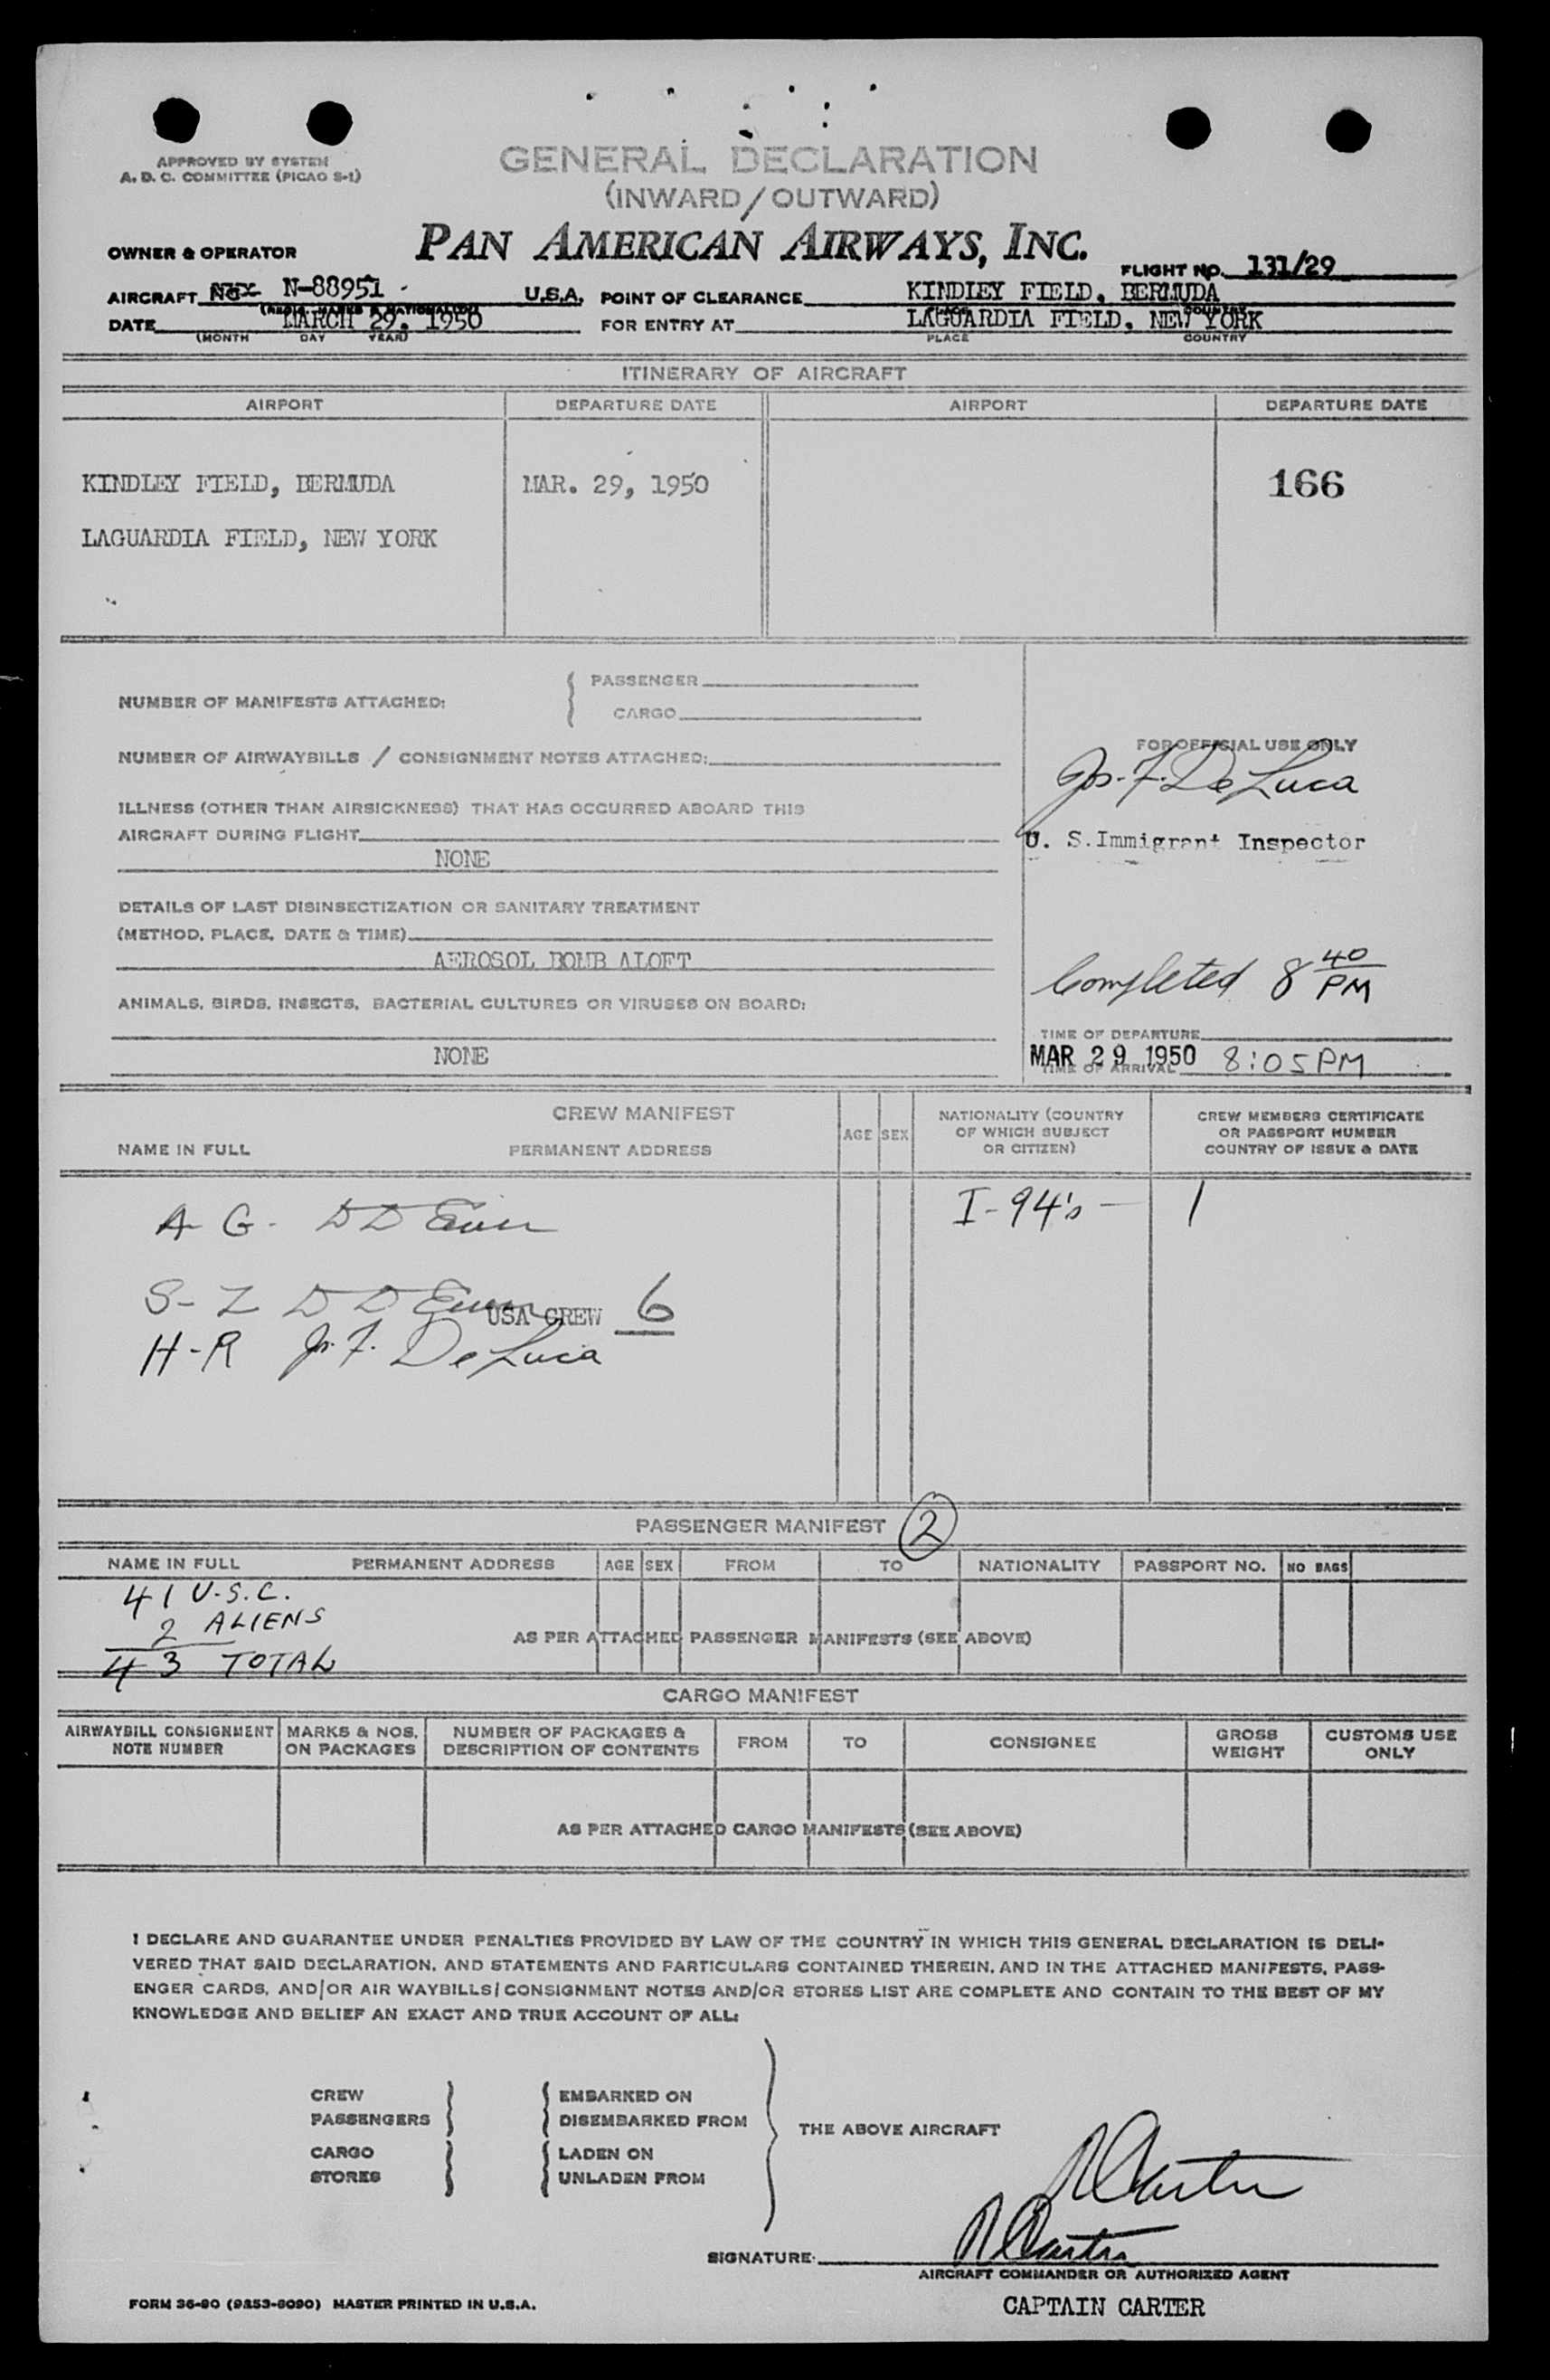 APPROVED BY SYSTEM
A. D. C. COMMITTEE (PICAO S-1)
GENERAL DECLARATION
(INWARD/OUTWARD)
OWNER & OPERATOR
PAN AMERICAN AIRWAYS, INC.
FLIGHT NO. 131/29
AIRCRAFT N-88951 U.S.A. POINT OF CLEARANCE KINDLEY FIELD, BERMUDA
DATE MARCH 29, 1950 FOR ENTRY AT LAGUARDIA FIELD, NEW YORK
(MONTH DAY YEAR) PLACE COUNTRY
ITINERARY OF AIRCRAFT
AIRPORT DEPARTURE DATE AIRPORT DEPARTURE DATE
KINDLEY FIELD, BERMUDA MAR. 29, 1950 166
LAGUARDIA FIELD, NEW YORK
NUMBER OF MANIFESTS ATTACHED: PASSENGER
CARGO
NUMBER OF AIRWAYBILLS / CONSIGNMENT NOTES ATTACHED:
FOR OFFICIAL USE ONLY
Jos. F. De Luca
U. S.Immigrant Inspector
ILLNESS (OTHER THAN AIRSICKNESS) THAT HAS OCCURRED ABOARD THIS
AIRCRAFT DURING FLIGHT
NONE
DETAILS OF LAST DISINSECTIZATION OR SANITARY TREATMENT
(METHOD, PLACE, DATE & TIME)
AEROSOL BOMB ALOFT
Completed 8 40 PM
ANIMALS, BIRDS, INSECTS, BACTERIAL CULTURES OR VIRUSES ON BOARD:
NONE
TIME OF DEPARTURE
MAR 29 1950 8:05 PM
TIME OF ARRIVAL
CREW MANIFEST
NAME IN FULL PERMANENT ADDRESS AGE SEX NATIONALITY (COUNTRY OF WHICH SUBJECT OR CITIZEN) CREW MEMBERS CERTIFICATE OR PASSPORT NUMBER COUNTRY OF ISSUE & DATE
A-G- D D I-94's - 1
S-Z D D USA CREW 6
H-R Jos. F. De Luca
PASSENGER MANIFEST 2
NAME IN FULL PERMANENT ADDRESS AGE SEX FROM TO NATIONALITY PASSPORT NO. NO BAGS
41 U.S.C.
2 ALIENS
AS PER ATTACHED PASSENGER MANIFESTS (SEE ABOVE)
43 TOTAL
CARGO MANIFEST
AIRWAYBILL CONSIGNMENT NOTE NUMBER MARKS & NOS. ON PACKAGES NUMBER OF PACKAGES & DESCRIPTION OF CONTENTS FROM TO CONSIGNEE GROSS WEIGHT CUSTOMS USE ONLY
AS PER ATTACHED CARGO MANIFESTS (SEE ABOVE)
I DECLARE AND GUARANTEE UNDER PENALTIES PROVIDED BY LAW OF THE COUNTRY IN WHICH THIS GENERAL DECLARATION IS DELI-
VERED THAT SAID DECLARATION, AND STATEMENTS AND PARTICULARS CONTAINED THEREIN, AND IN THE ATTACHED MANIFESTS, PASS-
ENGER CARDS, AND/OR AIR WAYBILLS/CONSIGNMENT NOTES AND/OR STORES LIST ARE COMPLETE AND CONTAIN TO THE BEST OF MY
KNOWLEDGE AND BELIEF AN EXACT AND TRUE ACCOUNT OF ALL:
CREW EMBARKED ON
PASSENGERS DISEMBARKED FROM
THE ABOVE AIRCRAFT
CARGO LADEN ON
STORES UNLADEN FROM
N Carter
SIGNATURE. N Carter
AIRCRAFT COMMANDER OR AUTHORIZED AGENT
FORM 36-90 (9253-6090) MASTER PRINTED IN U.S.A.
CAPTAIN CARTER